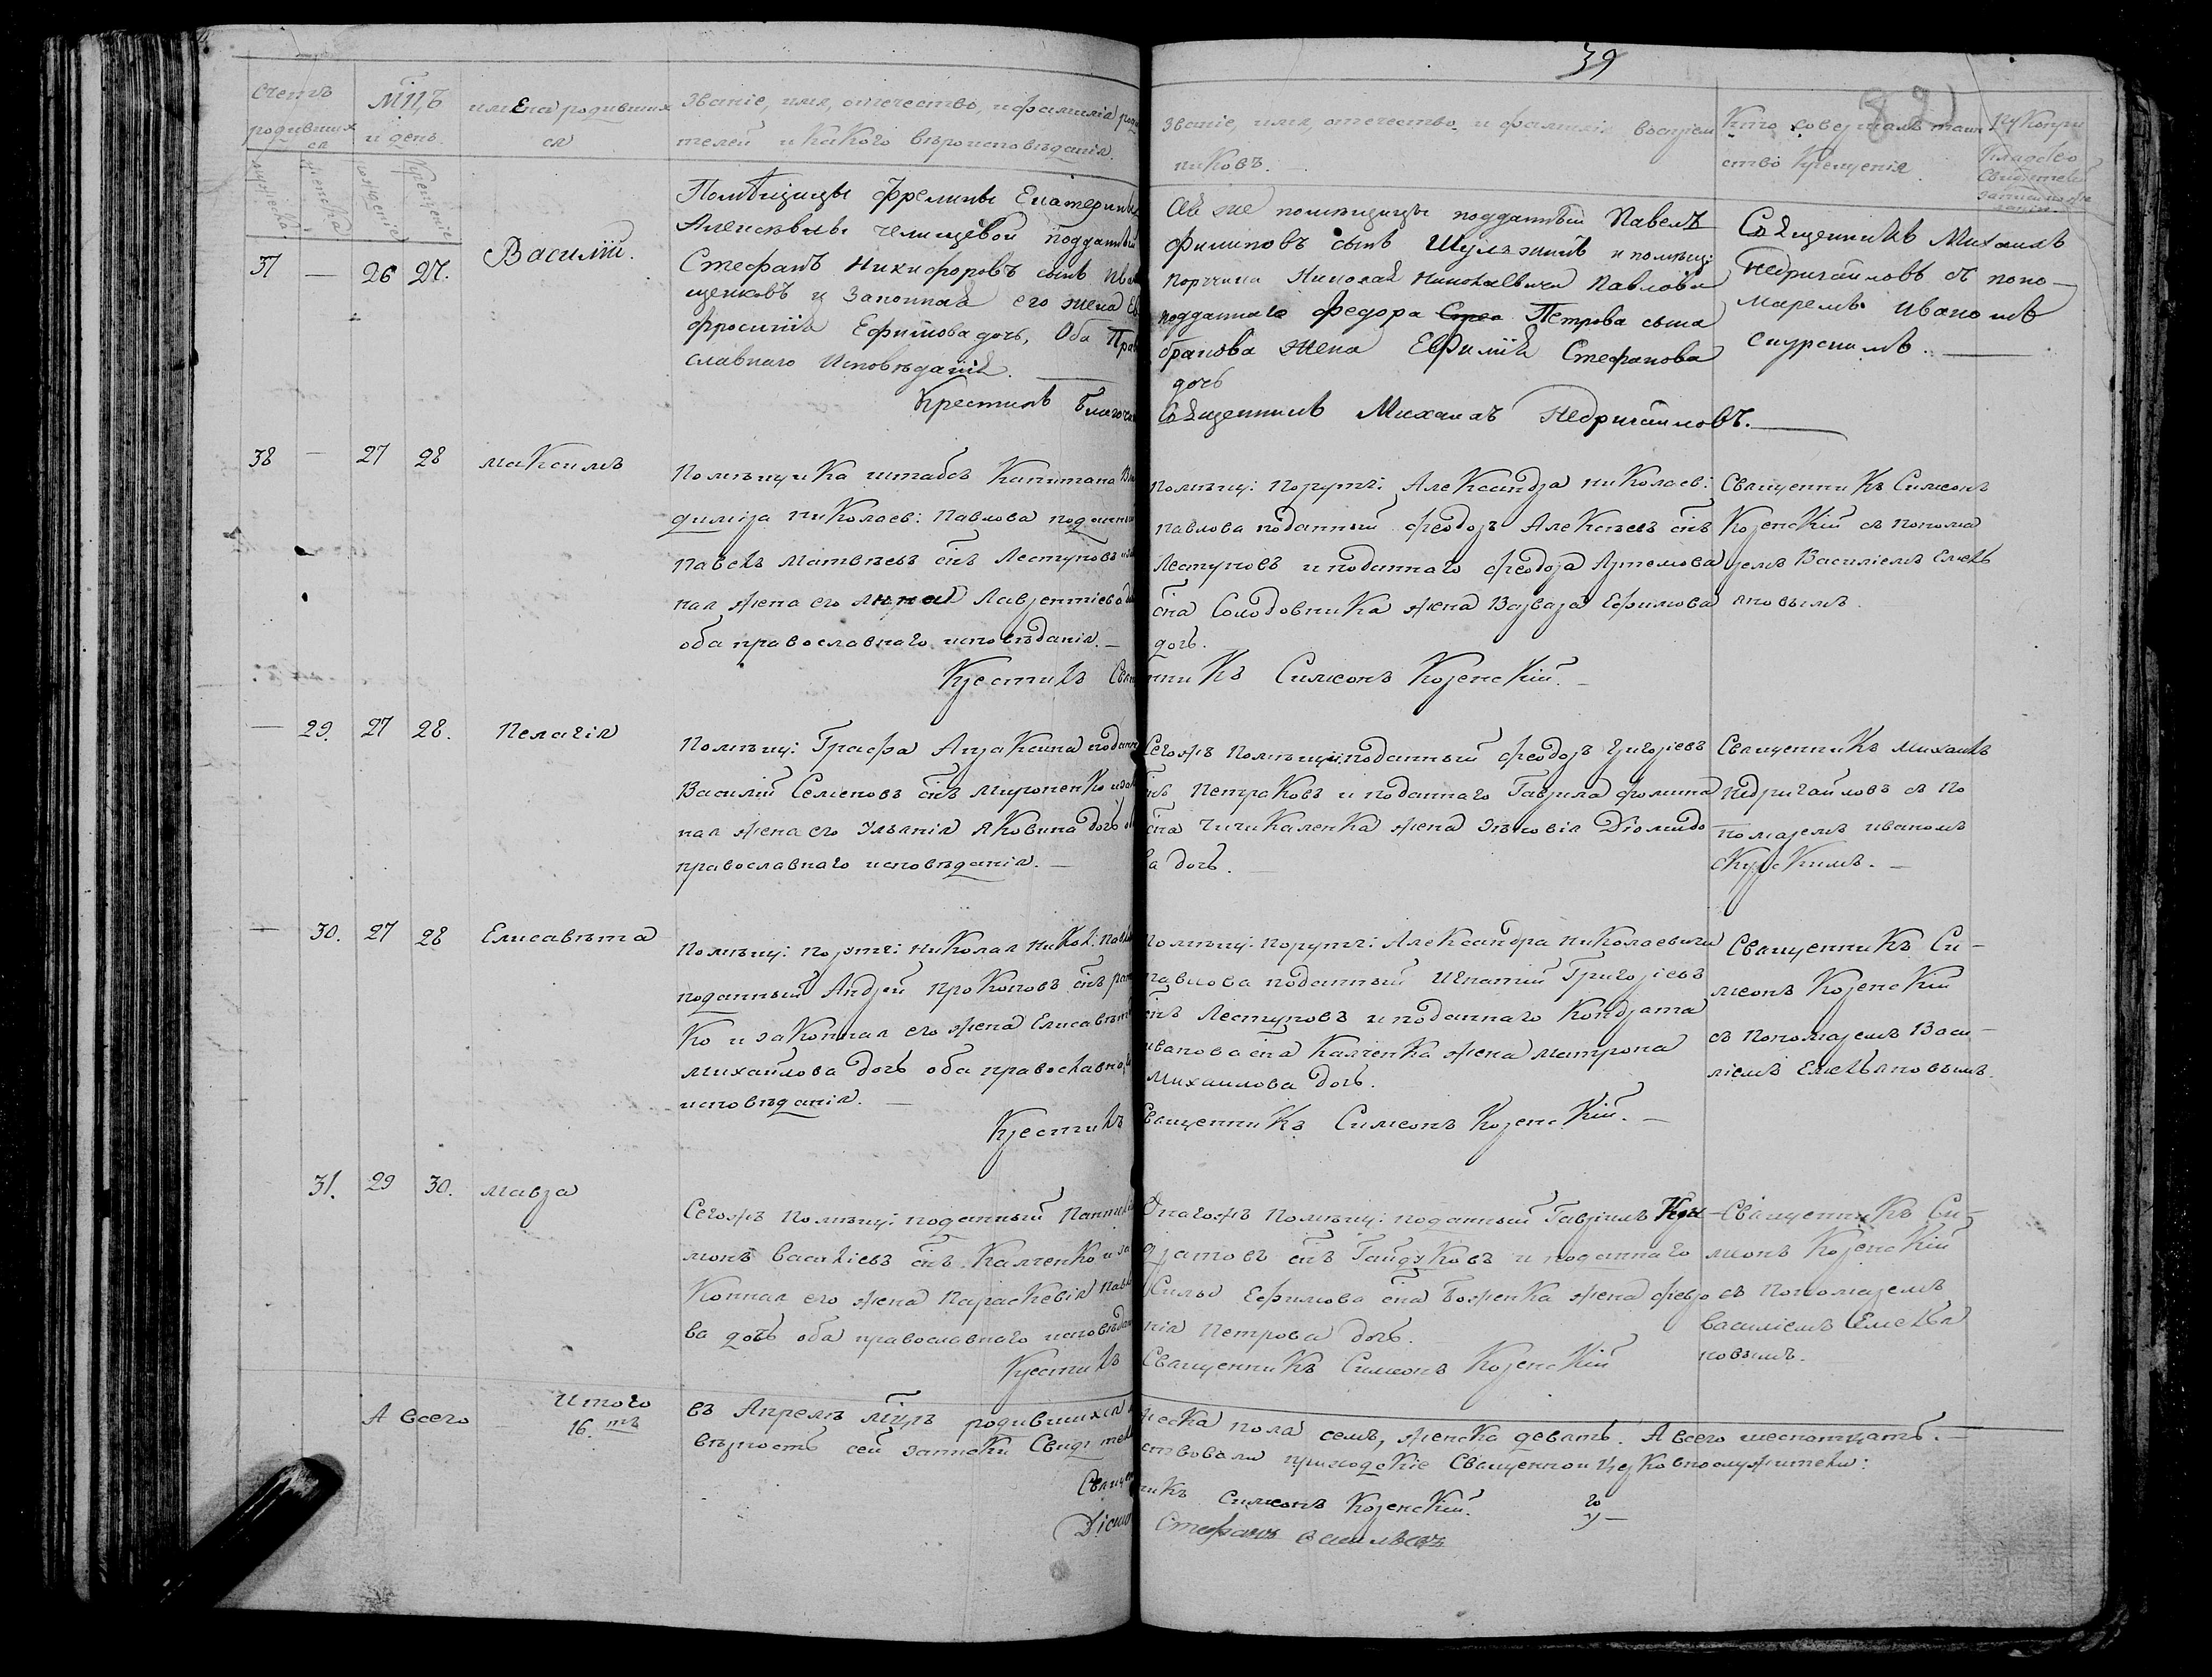 39
82
Счетъ
родивших
ся
мужеска.
женска
мц,ъ
и день.
рожденіе
Крещеніе
имена родивших
ся
Званіе, имя, отечество, и фамилія род
телей и Какого вѣроисповѣданія.
Званіе, имя, отечество и фамилія воспрiем
никовъ.
Кто совершалъ таин
ство Крещенія
37 — 26 27. Василій.
Помѣщицы Фрелины Екатерины
Алексѣвны Челищевой подданный
Стефанъ Никифоровъ сынъ Ива
щенковъ и Законная его жена Ев
фросинія Ефимова дочь, Оба Прав
славнаго Исповѣданія.
Крестилъ Благочин
Сей же помѣщицы подданный Павелъ
Филиповъ сынъ Шулзинъ и помѣщ:
Поручика Николая Николаевича Павлова
подданнаго Федора Петрова сына
бранова Жена Евфимія Стефанова
дочь
Священникъ Михаилъ Недригайловъ.
Священникъ Михаилъ
Недригайловъ съ поно-
маремъ Иваномъ
Скурскимъ.
38 — 27 28 максимъ
Помѣщика штабсъ Капитана Вла
диміра николаев: Павлова поданный
Павелъ Матвѣевъ сн҃ъ Лестуновъ изак
ная жена его Анна Лаврентіева до
оба православнаго исповѣданія.—
Крестилъ Свя
Помѣщ: Поруч: Александра николаев:
Павлова поданный феодоръ Алексѣевъ сн҃ъ
Лестуновъ и поданнаго феодора Артемова
сн҃а Солодовника жена Варвара Ефимова
дочь.
нникъ Симеонъ Коренскій.—
Священникъ Симеонъ
Коренскій съ понома
ремъ Василіемъ Емель
яновымъ.
— 29. 27 28. Пелагія
Помѣщ: Графа Аракчина поданн
Василій Семеновъ сн҃ъ Мироненко изако
ная жена его Ульянія Яковина дочь о
православнаго исповѣданія.—
Сегожъ Помѣщи:поданный феодоръ Григоріевъ
сн҃ъ Петраковъ и поданнаго Гаврила фомина
сн҃а Чичикаленка жена Зѣновія Діомидо
ва дочь.
Священникъ михаилъ
недригайловъ съ По
помаремъ иваномъ
Скурскимъ.—
— 30. 27 28 Елисавѣта
Помѣщ: Поруч: николая никол: Павл
поданный Андрей Прокоповъ сн҃ъ ран
ко и законная его жена Елисавѣт
михайлова дочь оба православнаго
исповѣданія.—
Крестилъ
Помѣщ: Поруч: Александра николаевича
павлова поданный Игнатій Григоріевъ
сн҃ъ Лестуновъ и поданнаго Кондрата
иванова сн҃а Калченка жена матрона
михаилова дочь.
Священникъ Симеонъ Коренскій.—
Священникъ Си-
меонъ Коренскій
съ Пономаремъ Васи-
ліемъ Емельяновымъ.
31. 29 30. мавра
Сегожъ Помѣщ: поданный Пантили
монъ Василіевъ сн҃ъ Калченко и за
Конная его жена Параскевія Павло
ва дочь оба православнаго исповѣдан
Крестилъ
Онагожъ Помѣщ: поданный Гавріилъ Кон-
дратовъ сн҃ъ Гайдуковъ и поданнаго
Силы Ефимова сн҃а Боженка жена февро
нія Петрова дочь.
Священникъ Симеонъ Коренскій
Священникъ Си-
меонъ Коренскій
съ Пономаремъ
Василіемъ Емелья
новымъ.
А всего
Итого
16.тъ
въ Апрелѣ мѣцѣ родившихся м
вѣрность сей записки Свидетель
Священ
Діако
жеска пола семь, женска девять. А всего шеснатцать.—
ствовали приходскіе Священно и Церковнослужители:
никъ Симеонъ Коренскій.
Стефанъ Васильевъ